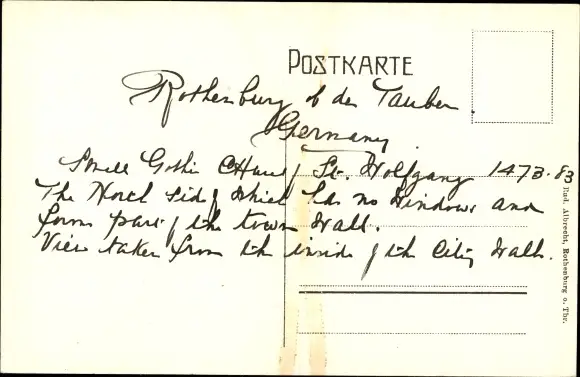 POSTKARTE
Rothenburg ob der Tauber
Germany
Small Gothic Church, St. Wolfgang 1473-83
The North side of which has no windows and
forms part of the town wall.
View taken from the inside of the City Wall.
Rud. Albrecht, Rothenburg o. Tbr.